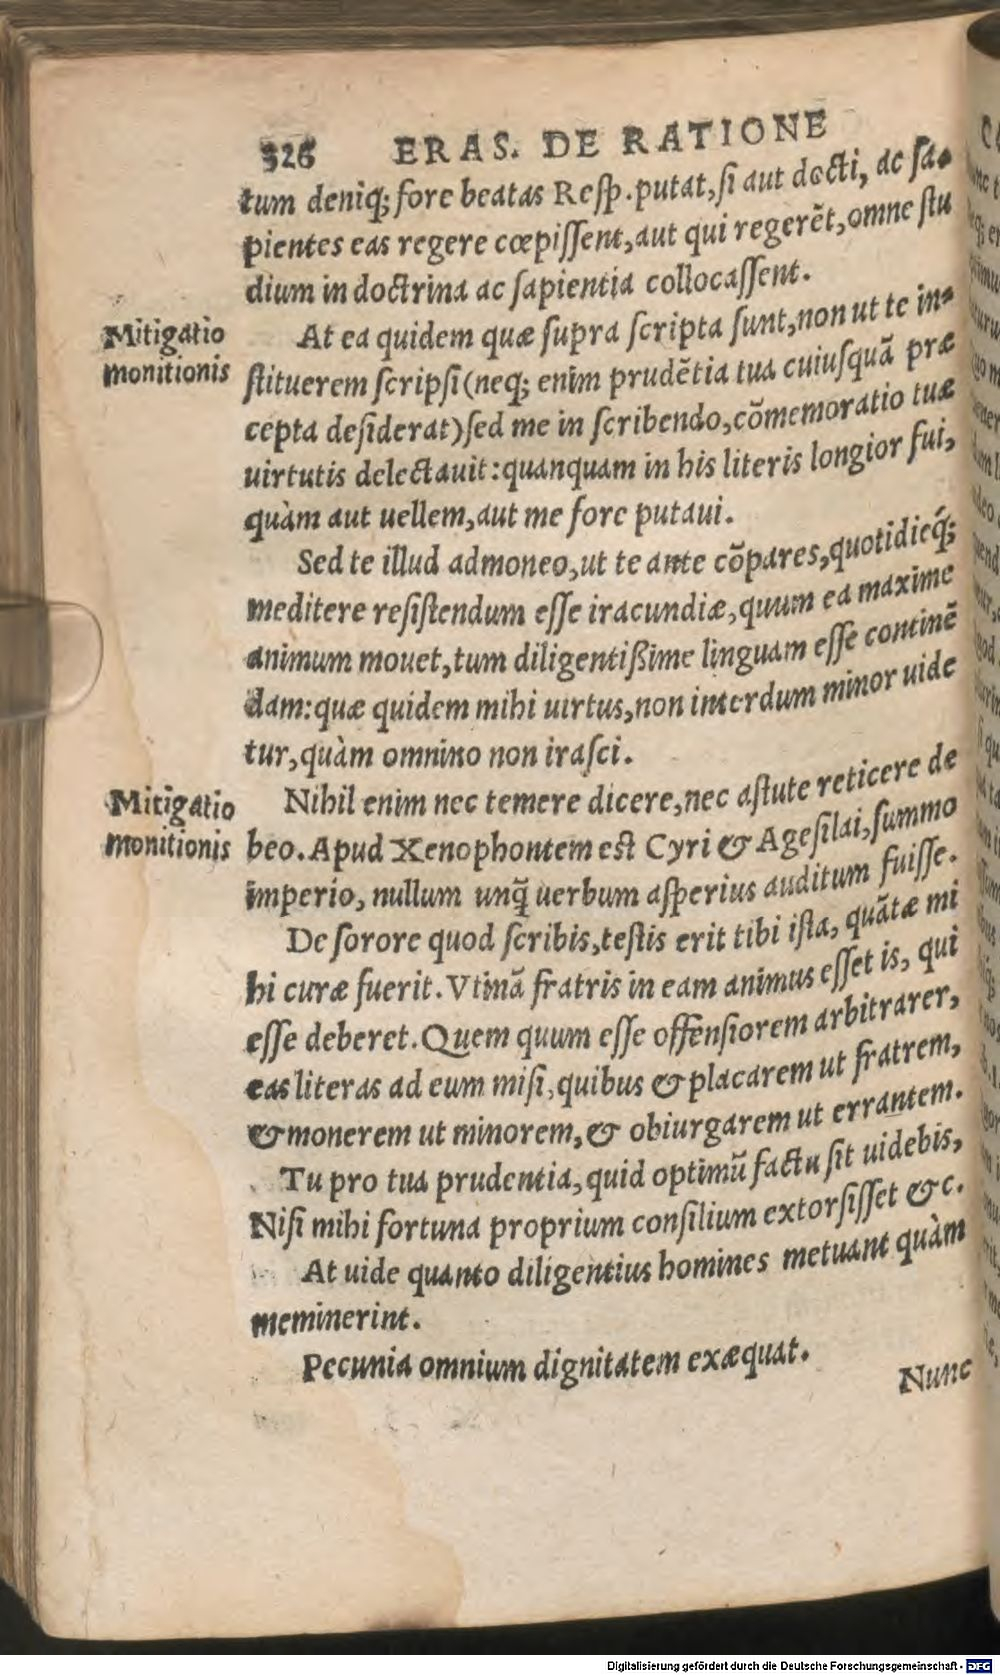 326 ERAS. DE RATIONE
tum deniq; fore beatas Resp. putat, si aut docti, ac sa-
pientes eas regere cœpissent, aut qui regerẽt, omne stu
dium in doctrina ac sapientia collocassent.
Mitigatio
monitionis
At ea quidem quæ supra scripta sunt, non ut te in-
stituerem scripsi (neq; enim prudẽtia tua cuiusquã præ
cepta desiderat) sed me in scribendo, cõmemoratio tuæ
uirtutis delectauit: quanquam in his literis longior fui,
quàm aut uellem, aut me fore putaui.
Sed te illud admoneo, ut te ante cõpares, quotidieq́;
meditere resistendum esse iracundiæ, quum ea maxime
animum mouet, tum diligentißime linguam esse continẽ
dam: quæ quidem mihi uirtus, non interdum minor uide
tur, quàm omnino non irasci.
Mitigatio
monitionis
Nihil enim nec temere dicere, nec astute reticere de
beo. Apud Xenophontem est Cyri & Agesilai, summo
imperio, nullum unq̃ uerbum asperius auditum fuisse.
De sorore quod scribis, testis erit tibi ista, quãtæ mi
hi curæ fuerit. Vtinã fratris in eam animus esset is, qui
esse deberet. Quem quum esse offensiorem arbitrarer,
eas literas ad eum misi, quibus & placarem ut fratrem,
& monerem ut minorem, & obiurgarem ut errantem.
Tu pro tua prudentia, quid optimũ factu sit uidebis,
Nisi mihi fortuna proprium consilium extorsisset &c.
At uide quanto diligentius homines metuant quàm
meminerint.
Pecunia omnium dignitatem exæquat.
Nunc
Digitalisierung gefördert durch die Deutsche Forschungsgemeinschaft - DFG